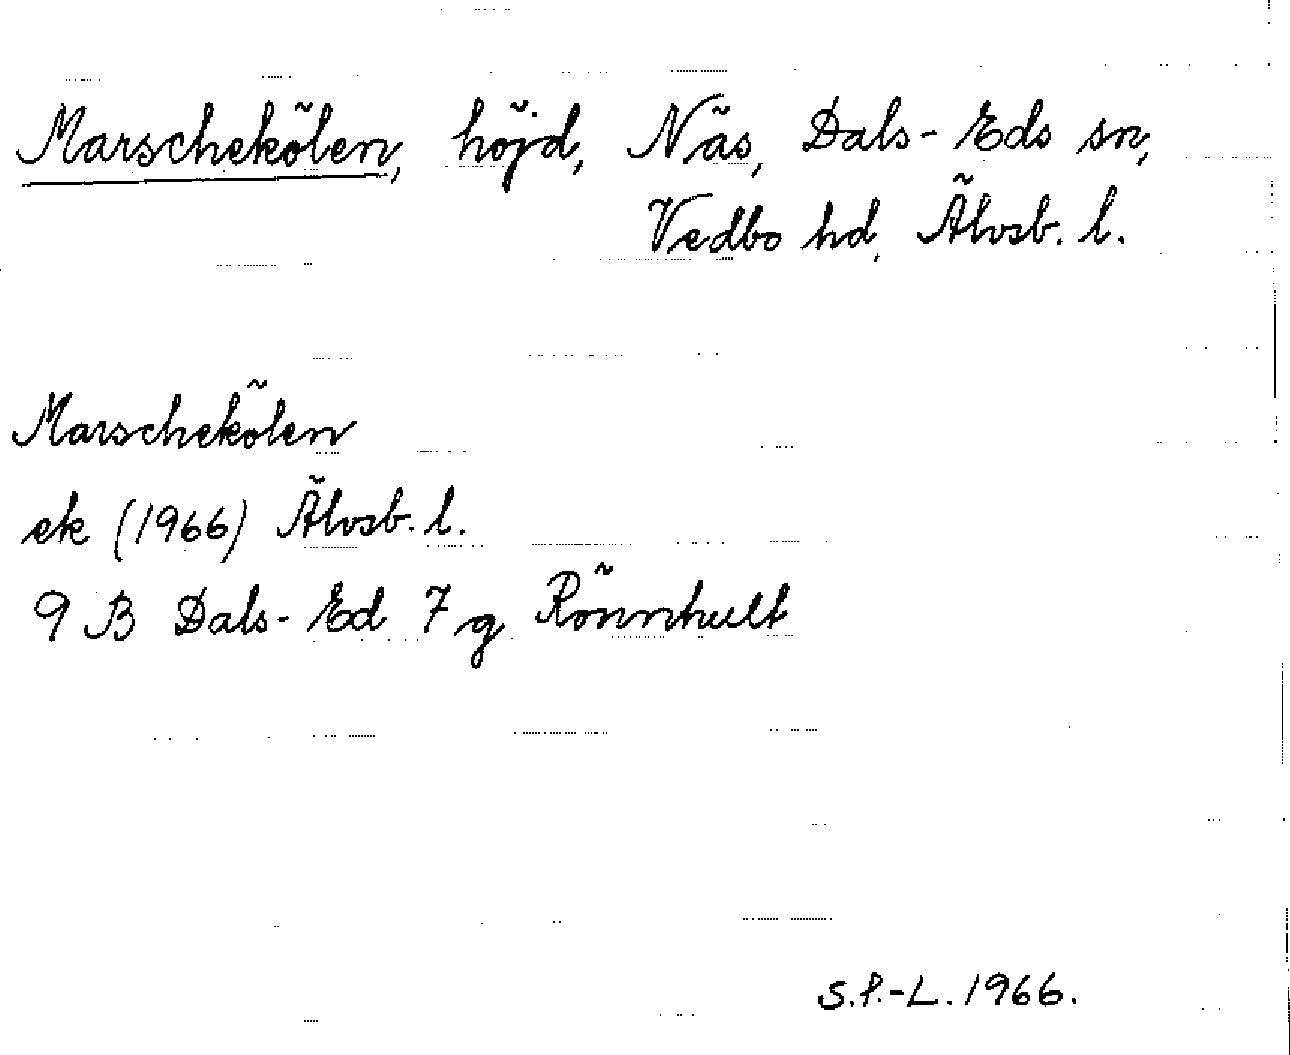 Marschekölen, höjd, Näs, Dals-Eds sn,
Vedbo hd, Älvsb. l.
Marschekölen
ek (1966) Älvsb. l.
9 B Dals-Ed 7 g Rönnhult
S.P.-L. 1966.